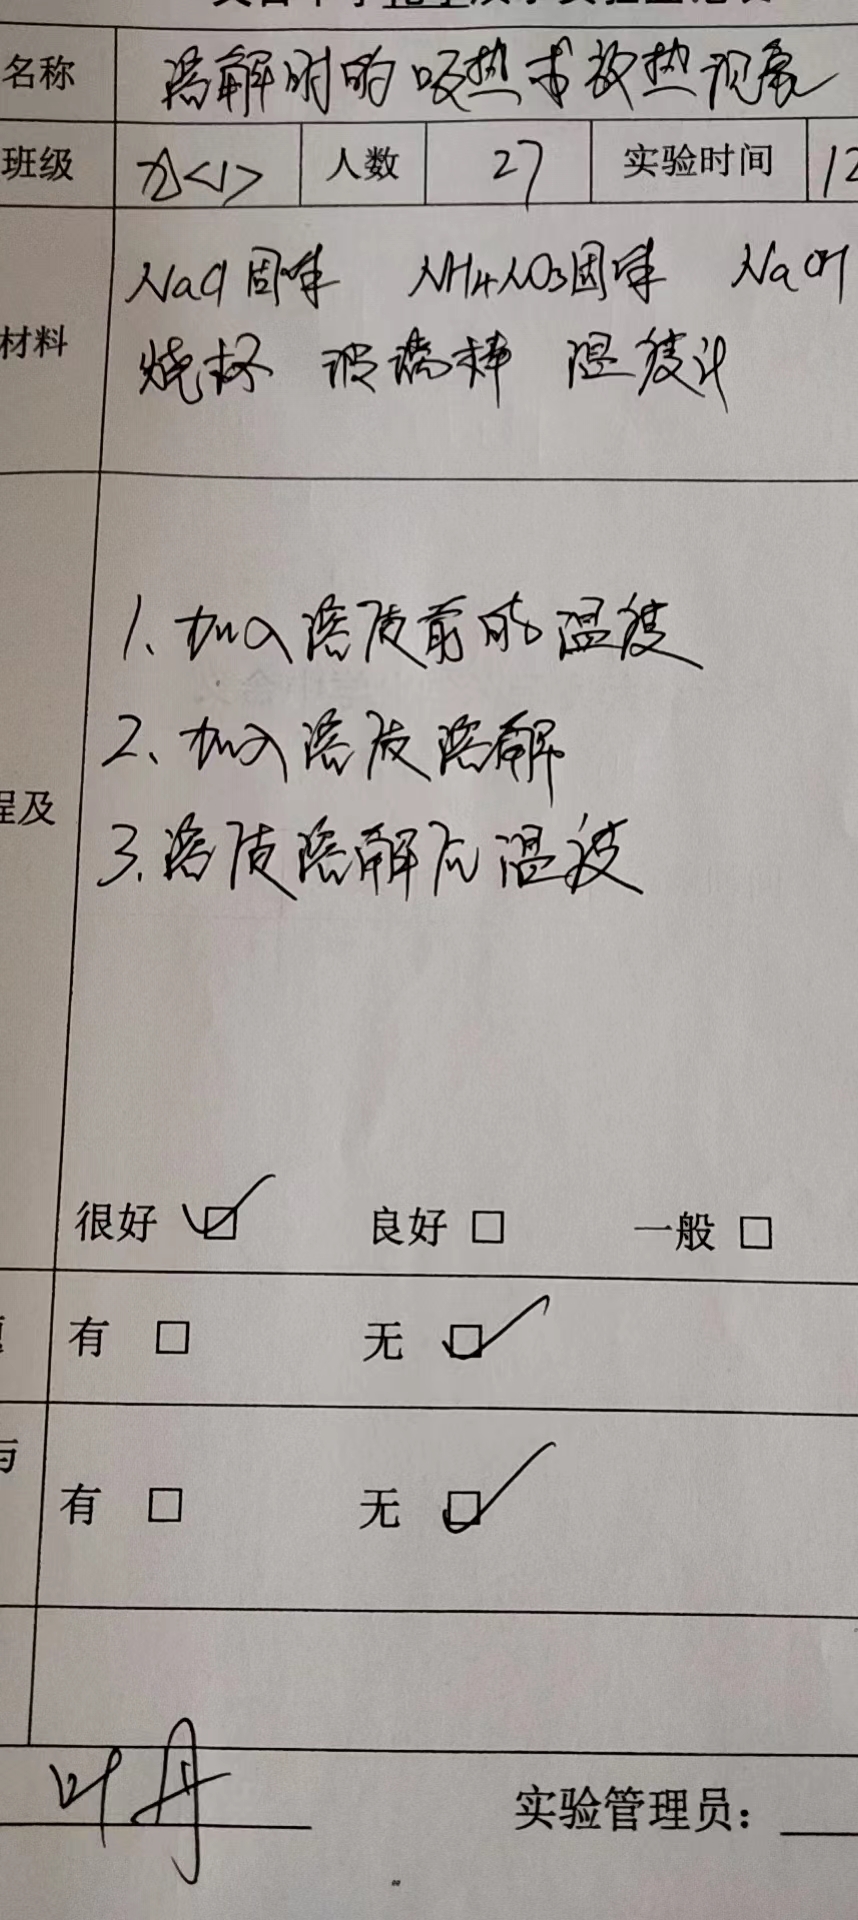 名称 溶解时的吸热或放热现象
班级 九<1> 人数 27 实验时间 12
NaCl固体 NH4NO3固体 NaOH
材料
烧杯 玻璃棒 温度计
1、加入溶质前的温度
2、加入溶质溶解
程及
3、溶质溶解后温度
很好 ☑ 良好 □ 一般 □
有 □ 无 ☑
与
有 □ 无 ☑
叶丹 实验管理员：